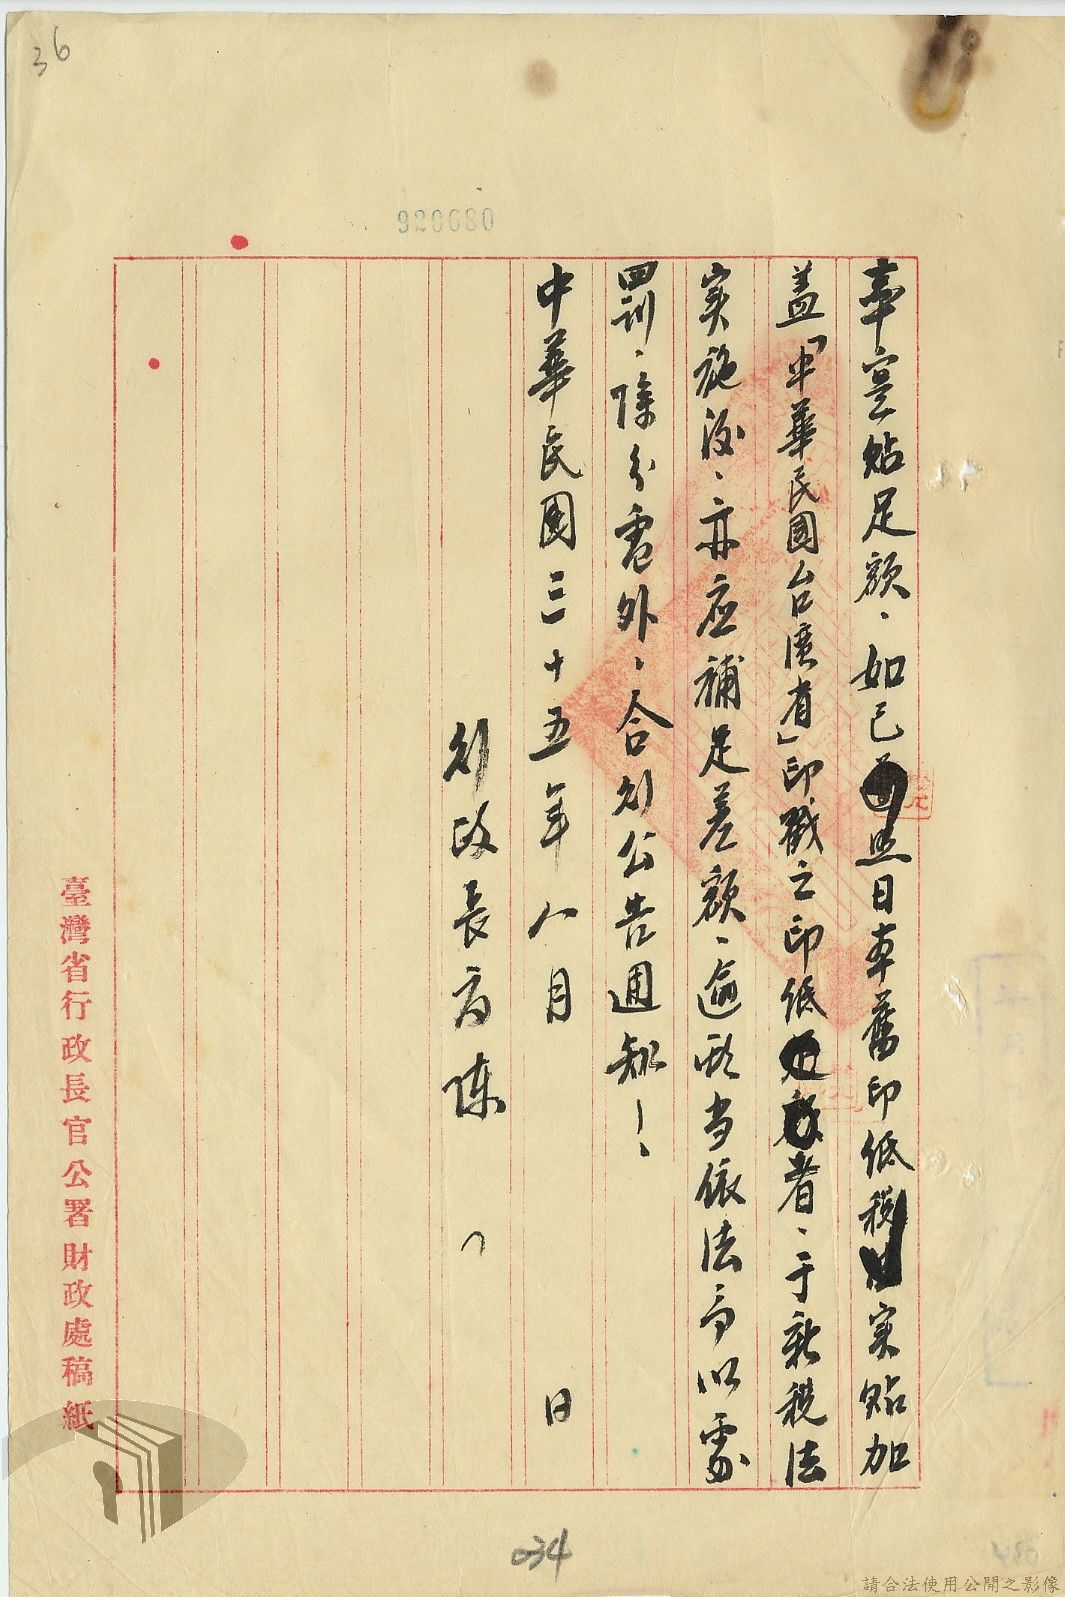 36
920680
率實貼足額、如已照日本舊印紙稅實貼加
盖「中華民國台湾省」印戳之印紙者、于新稅法
实施後、亦应補足差額、逾所当依法予以處
罰、除分電外、合別公告週知！
中華民國三十五年八月　日
別政長官陳
臺灣省行政長官公署財政處稿紙
034
請合法使用公開之影像